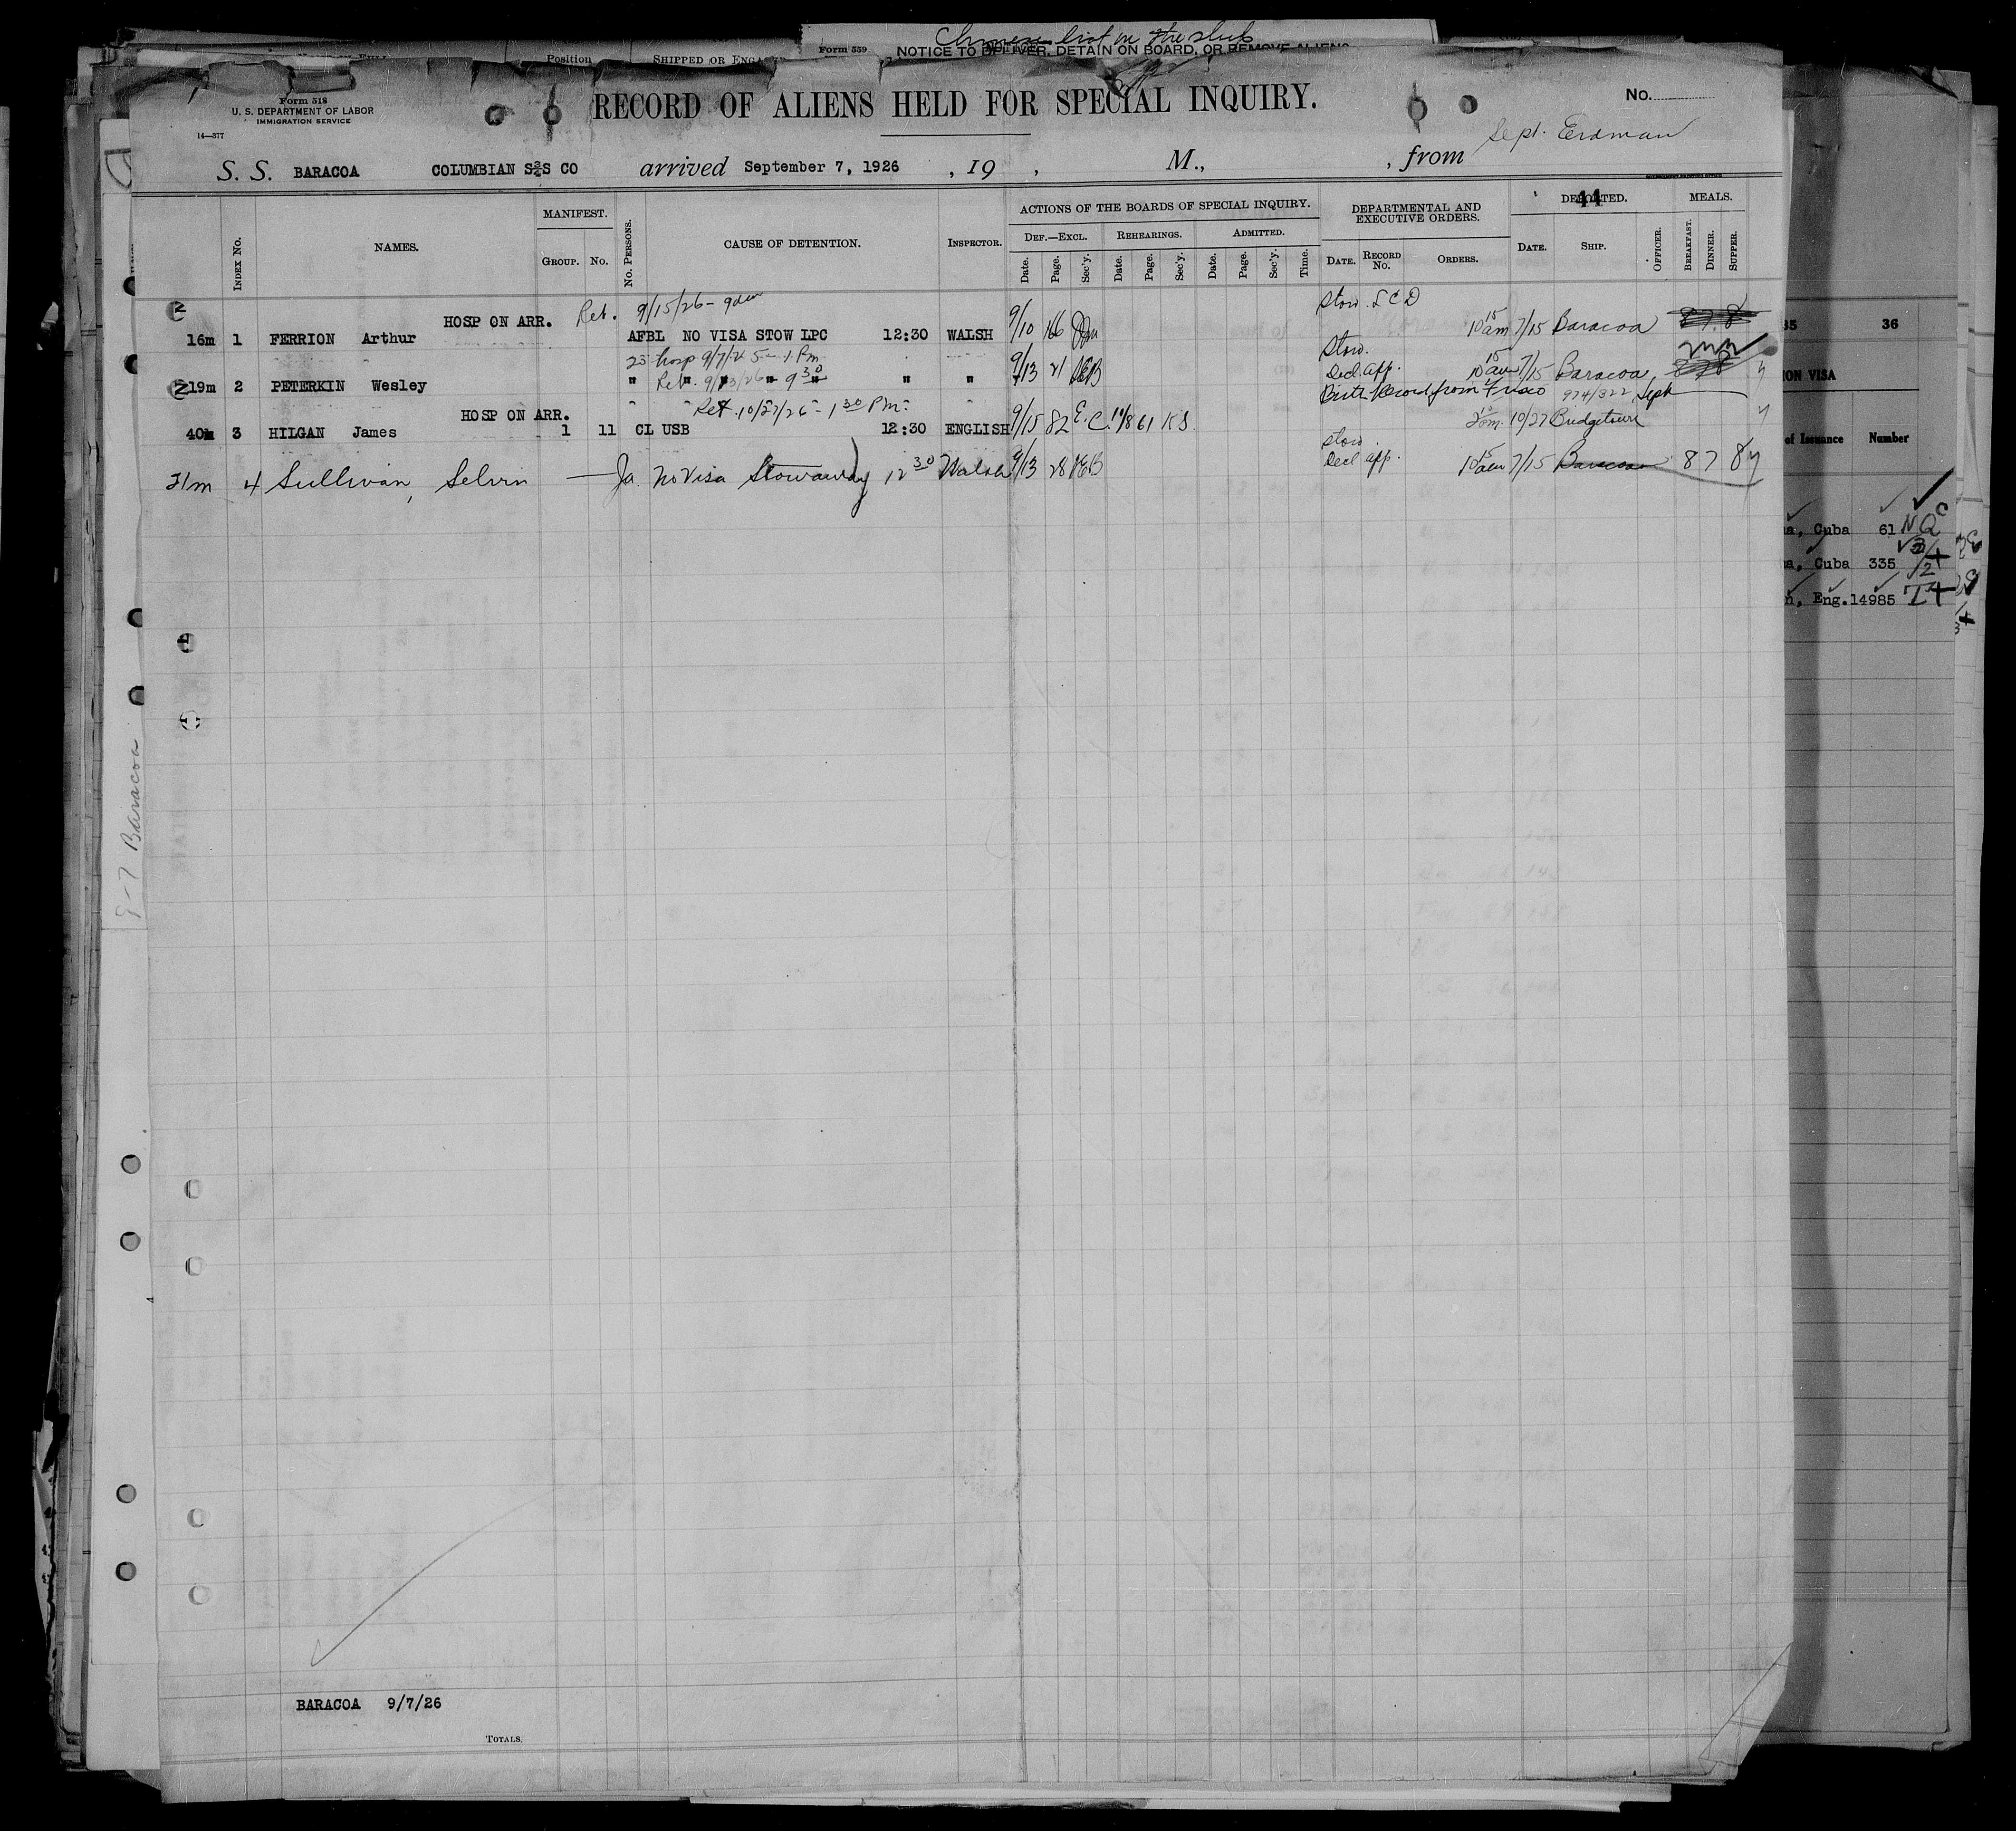 Chinese list on the ship
Position SHIPPED OR ENGA
Form 559
NOTICE TO DELIVER, DETAIN ON BOARD, OR REMOVE ALIENS
Form 518
U. S. DEPARTMENT OF LABOR
IMMIGRATION SERVICE
14—377
RECORD OF ALIENS HELD FOR SPECIAL INQUIRY.
No.
Sept. Erdman
S. S. BARACOA COLUMBIAN S S CO arrived September 7, 1926 , 19 , M., , from
44
INDEX No. NAMES. MANIFEST. GROUP. No. No. PERSONS. CAUSE OF DETENTION. INSPECTOR.
ACTIONS OF THE BOARDS OF SPECIAL INQUIRY.
DEF.—EXCL. REHEARINGS. ADMITTED.
Date. Page. Sec'y. Date. Page. Sec'y. Date. Page. Sec'y. Time.
DEPARTMENTAL AND EXECUTIVE ORDERS.
DATE. RECORD No. ORDERS.
DEPORTED.
DATE. SHIP. OFFICER.
MEALS.
BREAKFAST. DINNER. SUPPER.
Ret. 9/15/26 - 9am Stow. L C D
HOSP ON ARR.
16m 1 FERRION Arthur AFBL NO VISA STOW LPC 12:30 WALSH 9/10 166 10 15 am 7/15 Baracoa 8 7 8
hosp 9/7/26 5- 1 Pm Stow.
19m 2 PETERKIN Wesley " Ret. 9/13/26 - 9 30 " " 9/13 21 Decl. app. 10 15 am 7/15 Baracoa
Birth Record from Frisco 974/322 Sept
HOSP ON ARR. Ret. 10/27/26 - 1 30 PM.
40m 3 HILGAN James 1 11 CL USB 12:30 ENGLISH 9/15 82 E. C. 10/8 61 K S. 10/27 Bridgetown
Stow.
21m 4 Sullivan, Selvin — Ja. No Visa Stowaway 12 30 Walsh 9/13 28 Decl app. 10 15 am 7/15 Baracoa 8 7 8
35 36
ION VISA
of Issuance Number
a, Cuba 61 NQC
a, Cuba 335
n, Eng. 14985
9-7 Baracoa
BARACOA 9/7/26
TOTALS.